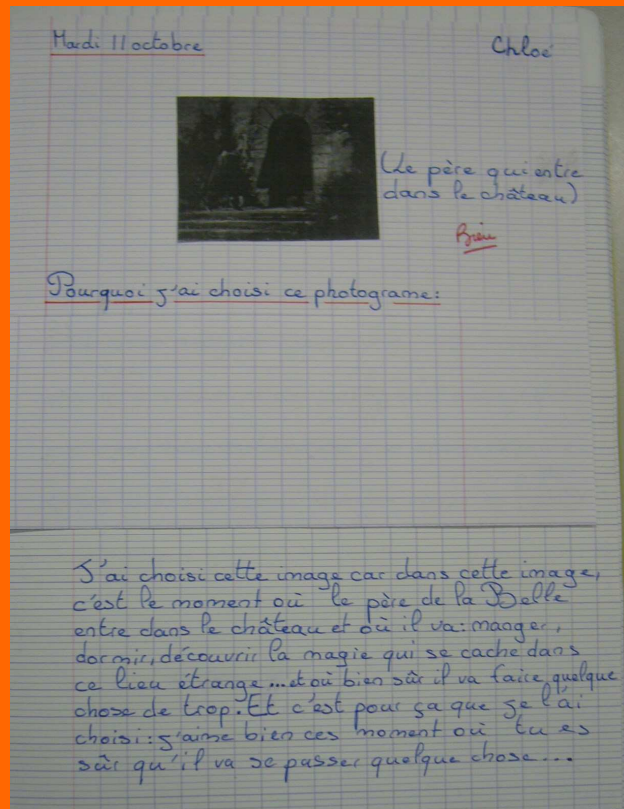 Mardi 11 octobre
Chloé
(Le père qui entre
dans le château)
Bien
Pourquoi j'ai choisi ce photograme:
J'ai choisi cette image car dans cette image,
c'est le moment où le père de la Belle
entre dans le château et où il va: manger,
dormir, découvrir la magie qui se cache dans
ce lieu étrange...et où bien sûr il va faire quelque
chose de trop. Et c'est pour ça que je l'ai
choisi: j'aime bien ces moment où tu es
sûr qu'il va se passer quelque chose...